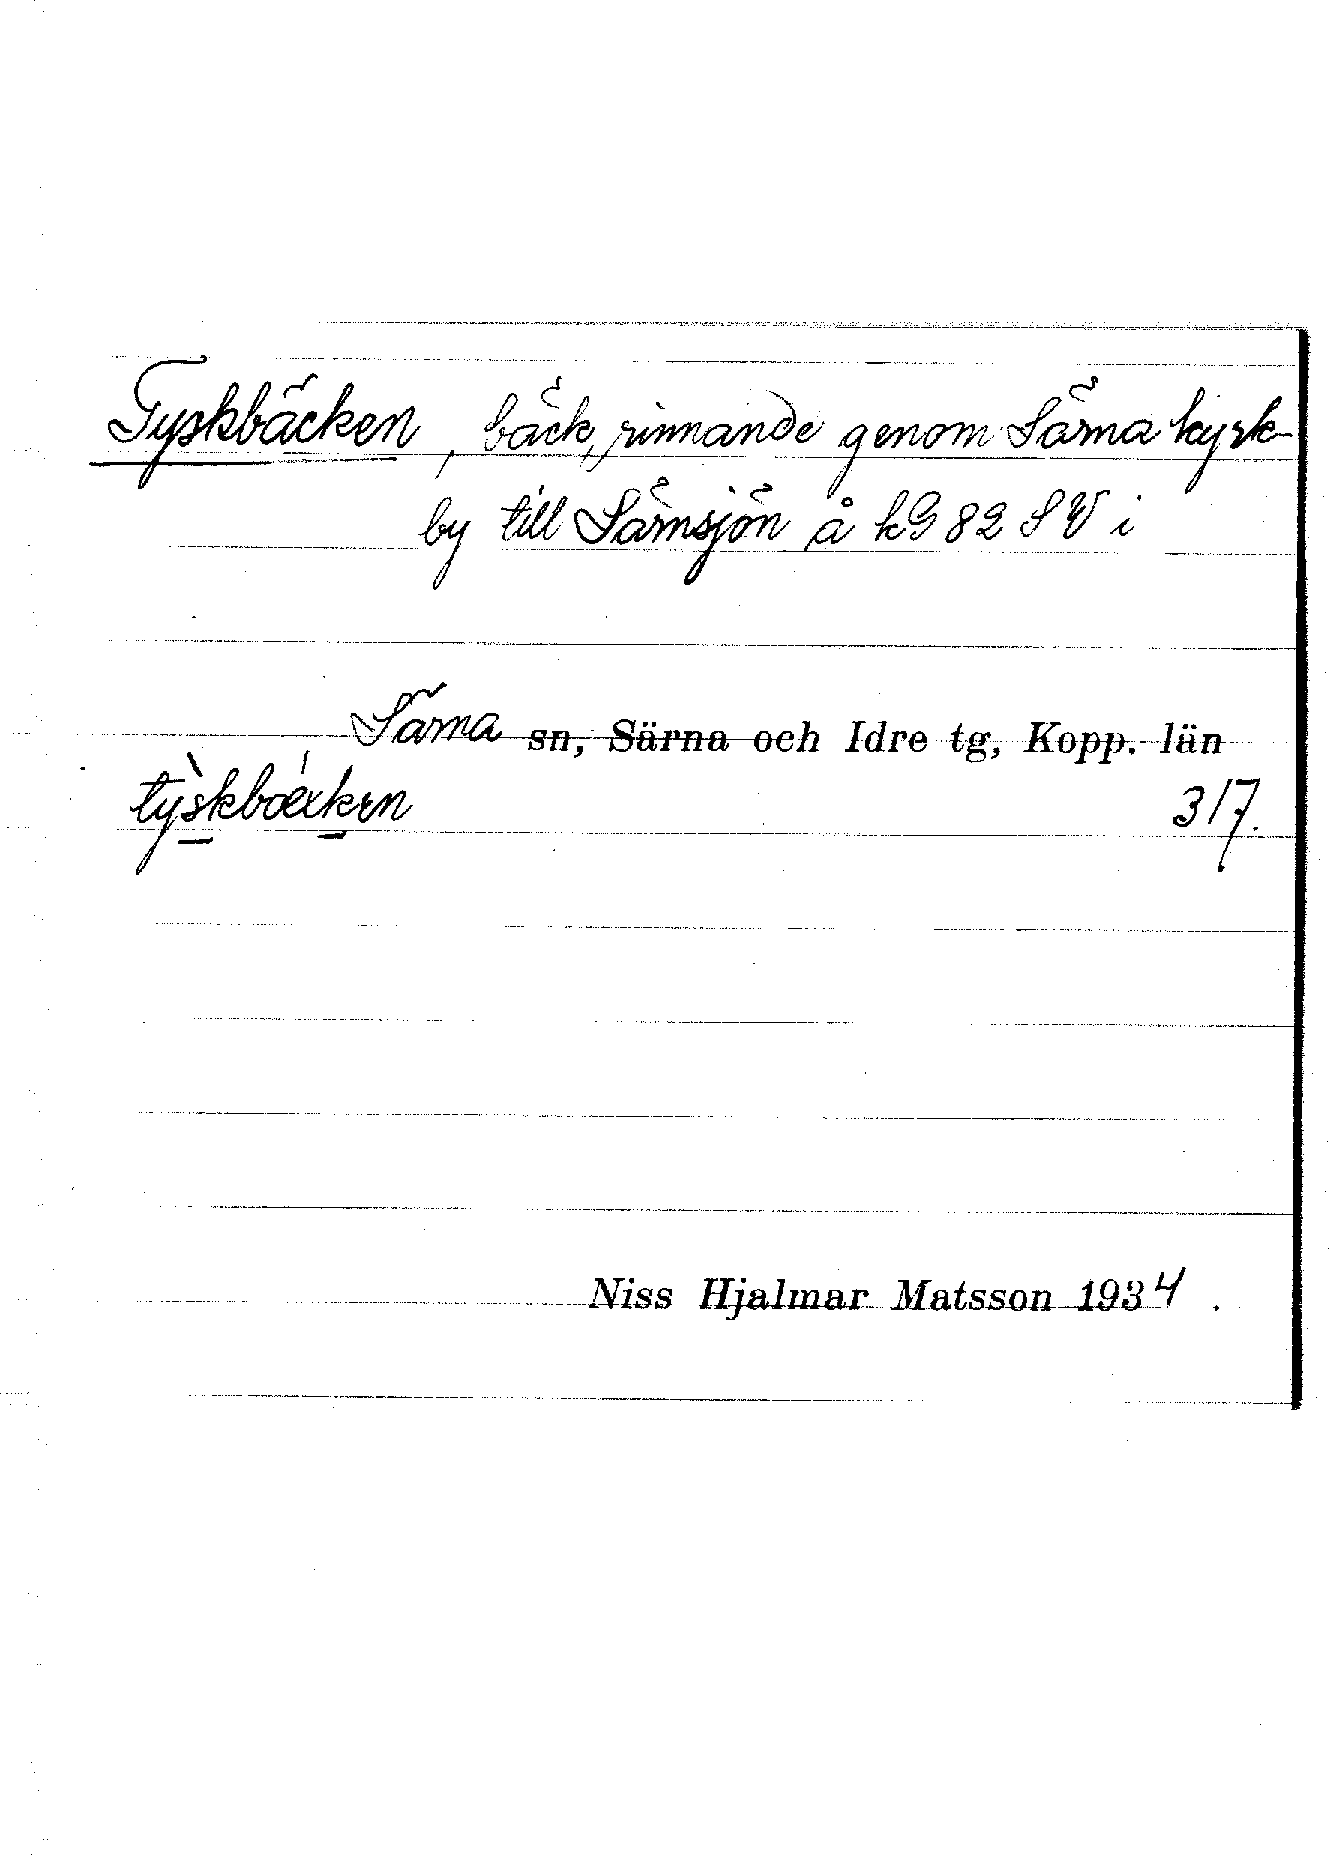 Tyskbäcken, bäck, rinnande genom Särna kyrk-
by till Särnsjön å kG 82 SV i
Särna sn, Särna och Idre tg, Kopp. län
tỳskbǽkεn 3/7.
Niss Hjalmar Matsson 1934.